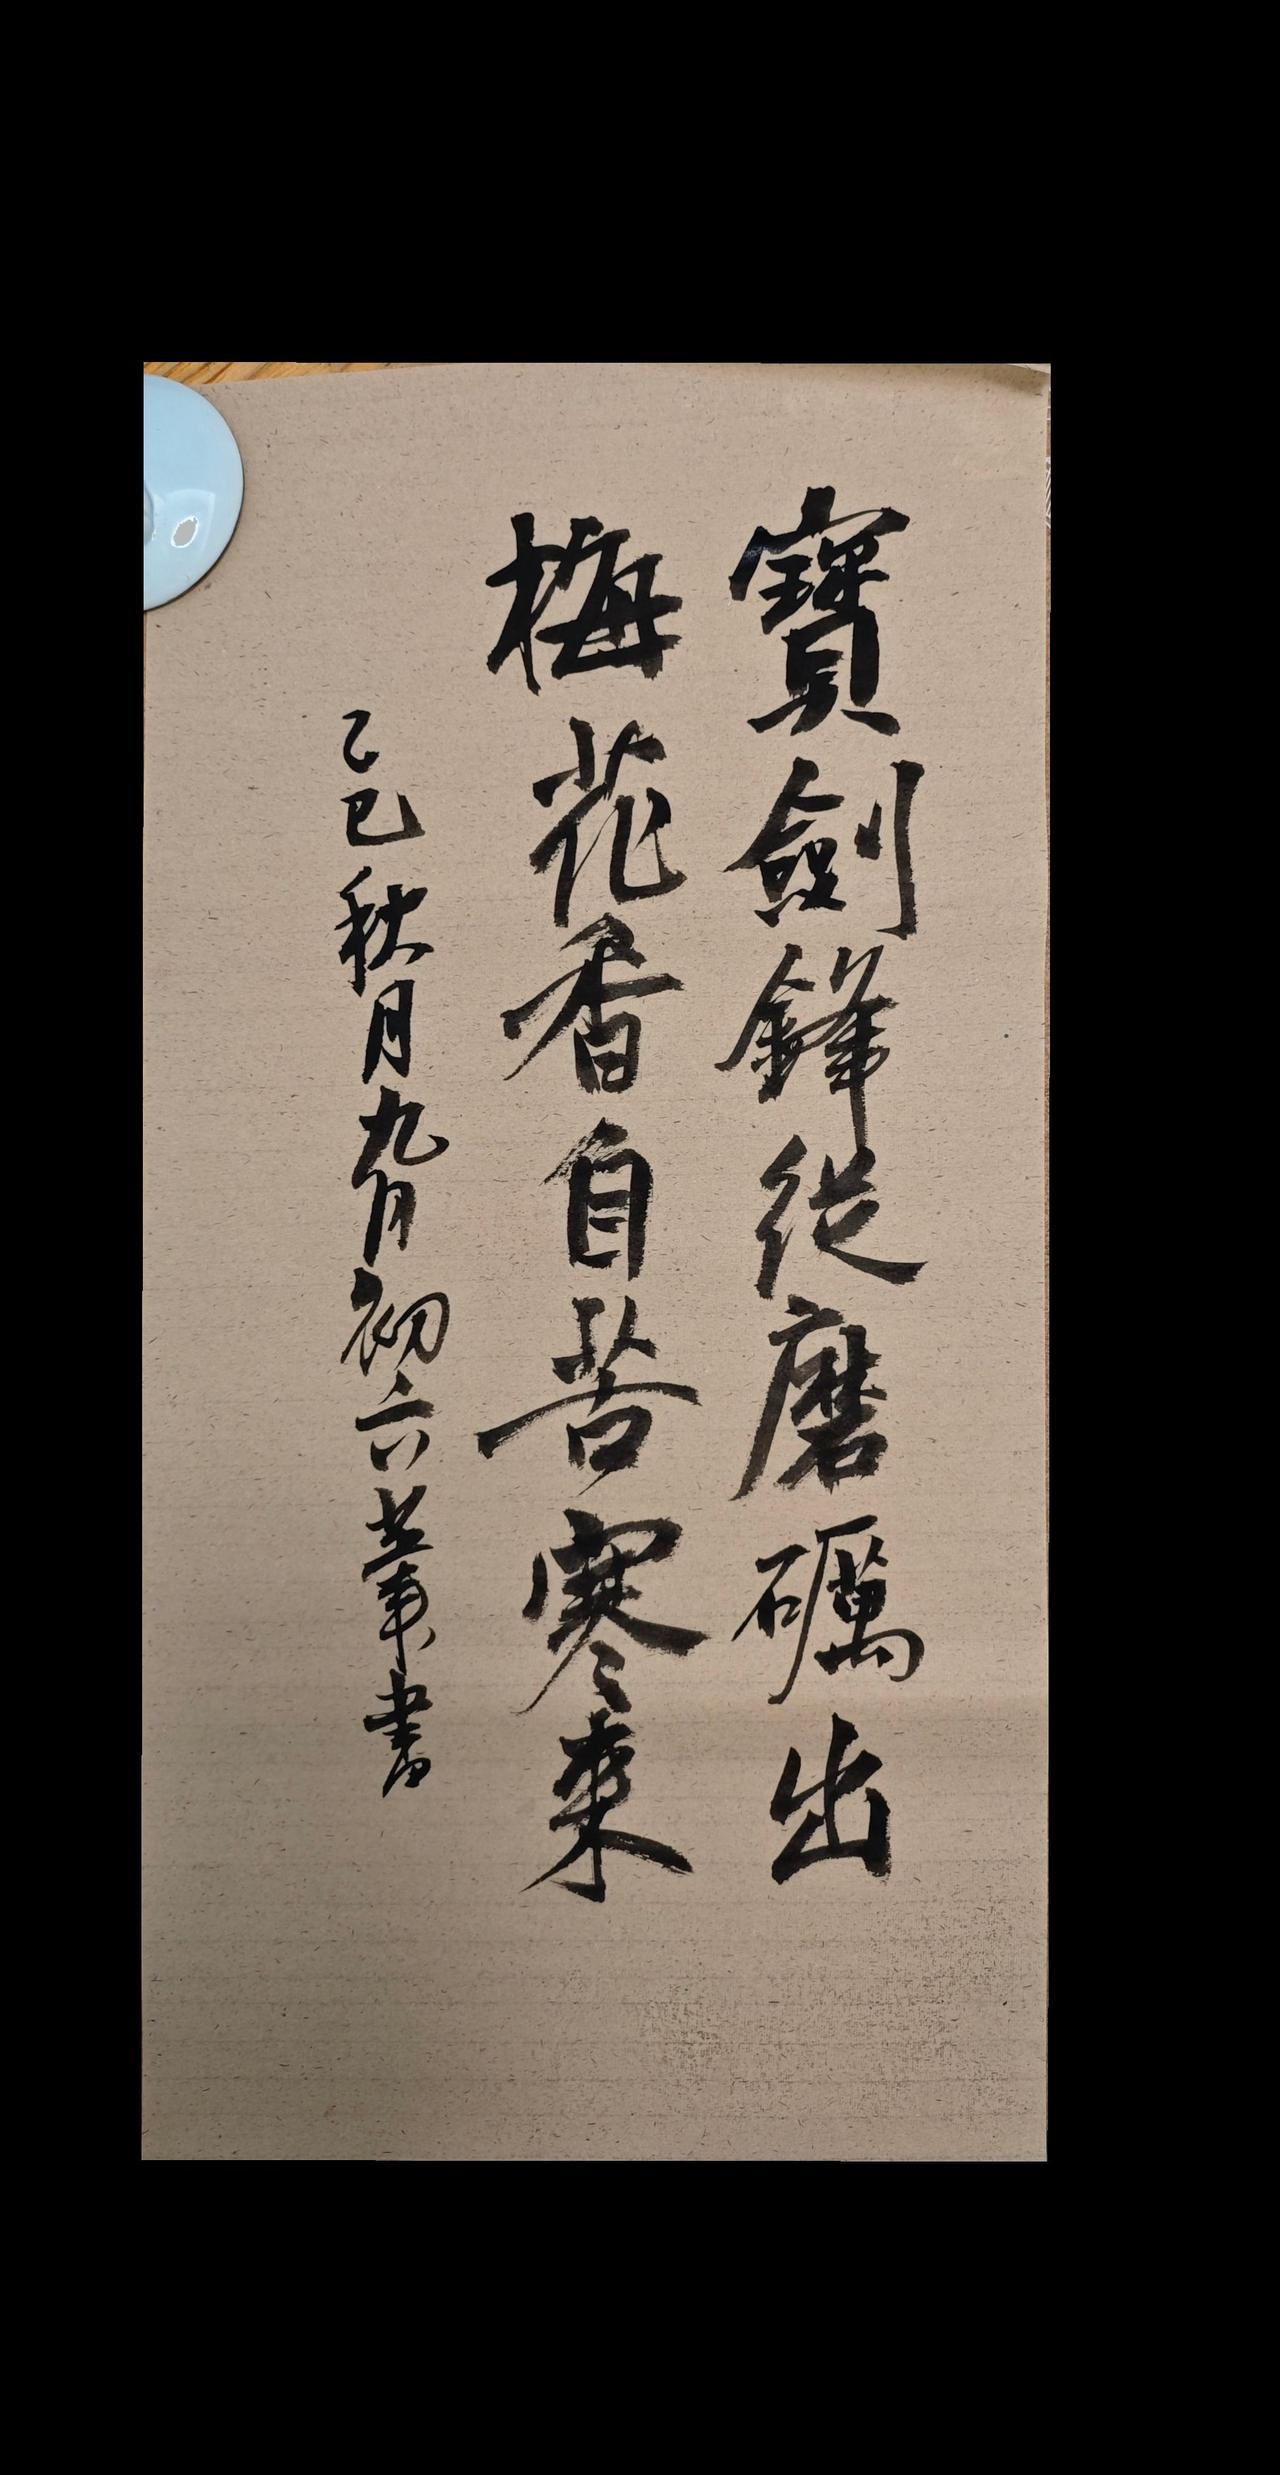 寶劍鋒從磨礪出
梅花香自苦寒來
乙巳秋月九月初六書